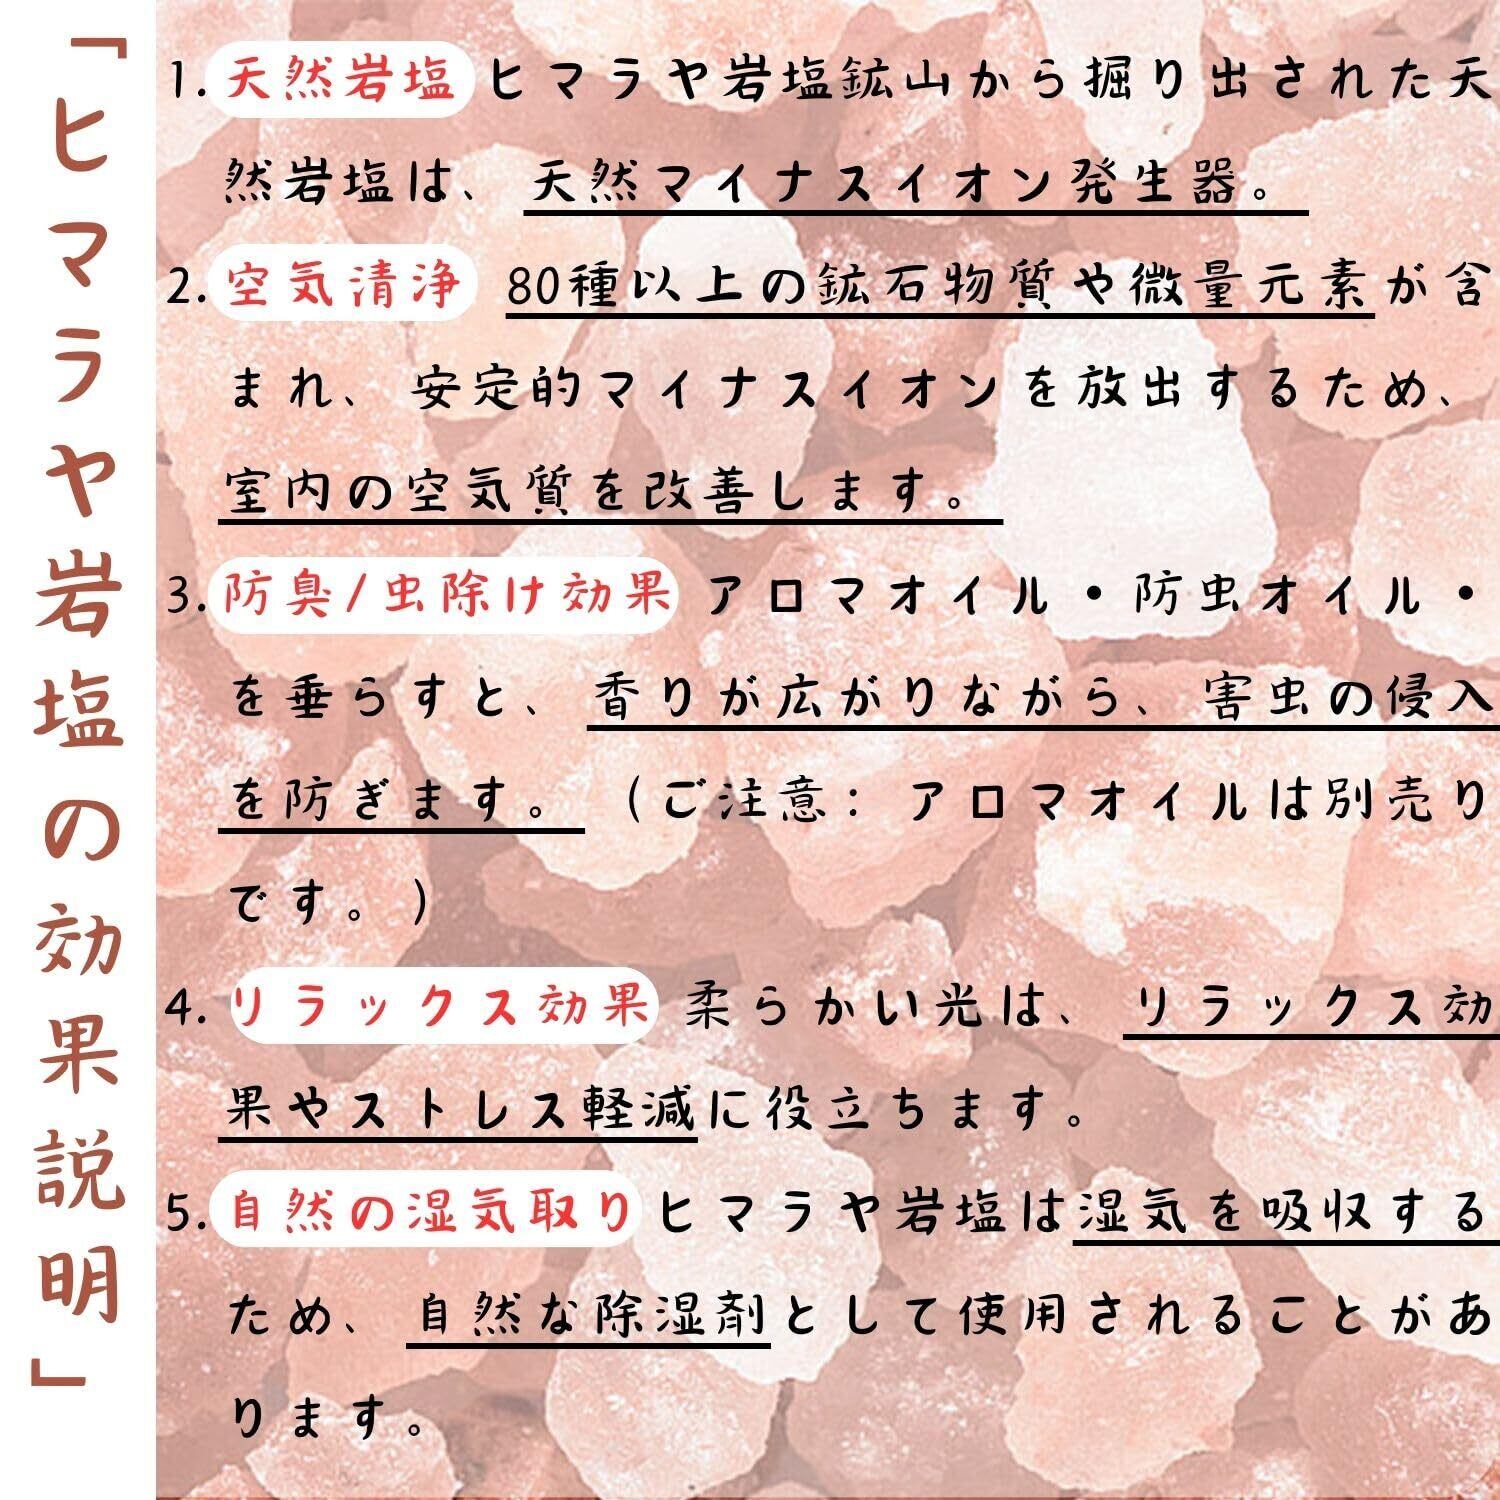 「ヒマラヤ岩塩の効果説明」
1. 天然岩塩 ヒマラヤ岩塩鉱山から掘り出された天
然岩塩は、天然マイナスイオン発生器。
2. 空気清浄 80種以上の鉱石物質や微量元素が含
まれ、安定的マイナスイオンを放出するため、
室内の空気質を改善します。
3. 防臭/虫除け効果 アロマオイル・防虫オイル・
を垂らすと、香りが広がりながら、害虫の侵入
を防ぎます。（ご注意：アロマオイルは別売り
です。）
4. リラックス効果 柔らかい光は、リラックス効
果やストレス軽減に役立ちます。
5. 自然の湿気取り ヒマラヤ岩塩は湿気を吸収する
ため、自然な除湿剤として使用されることがあ
ります。